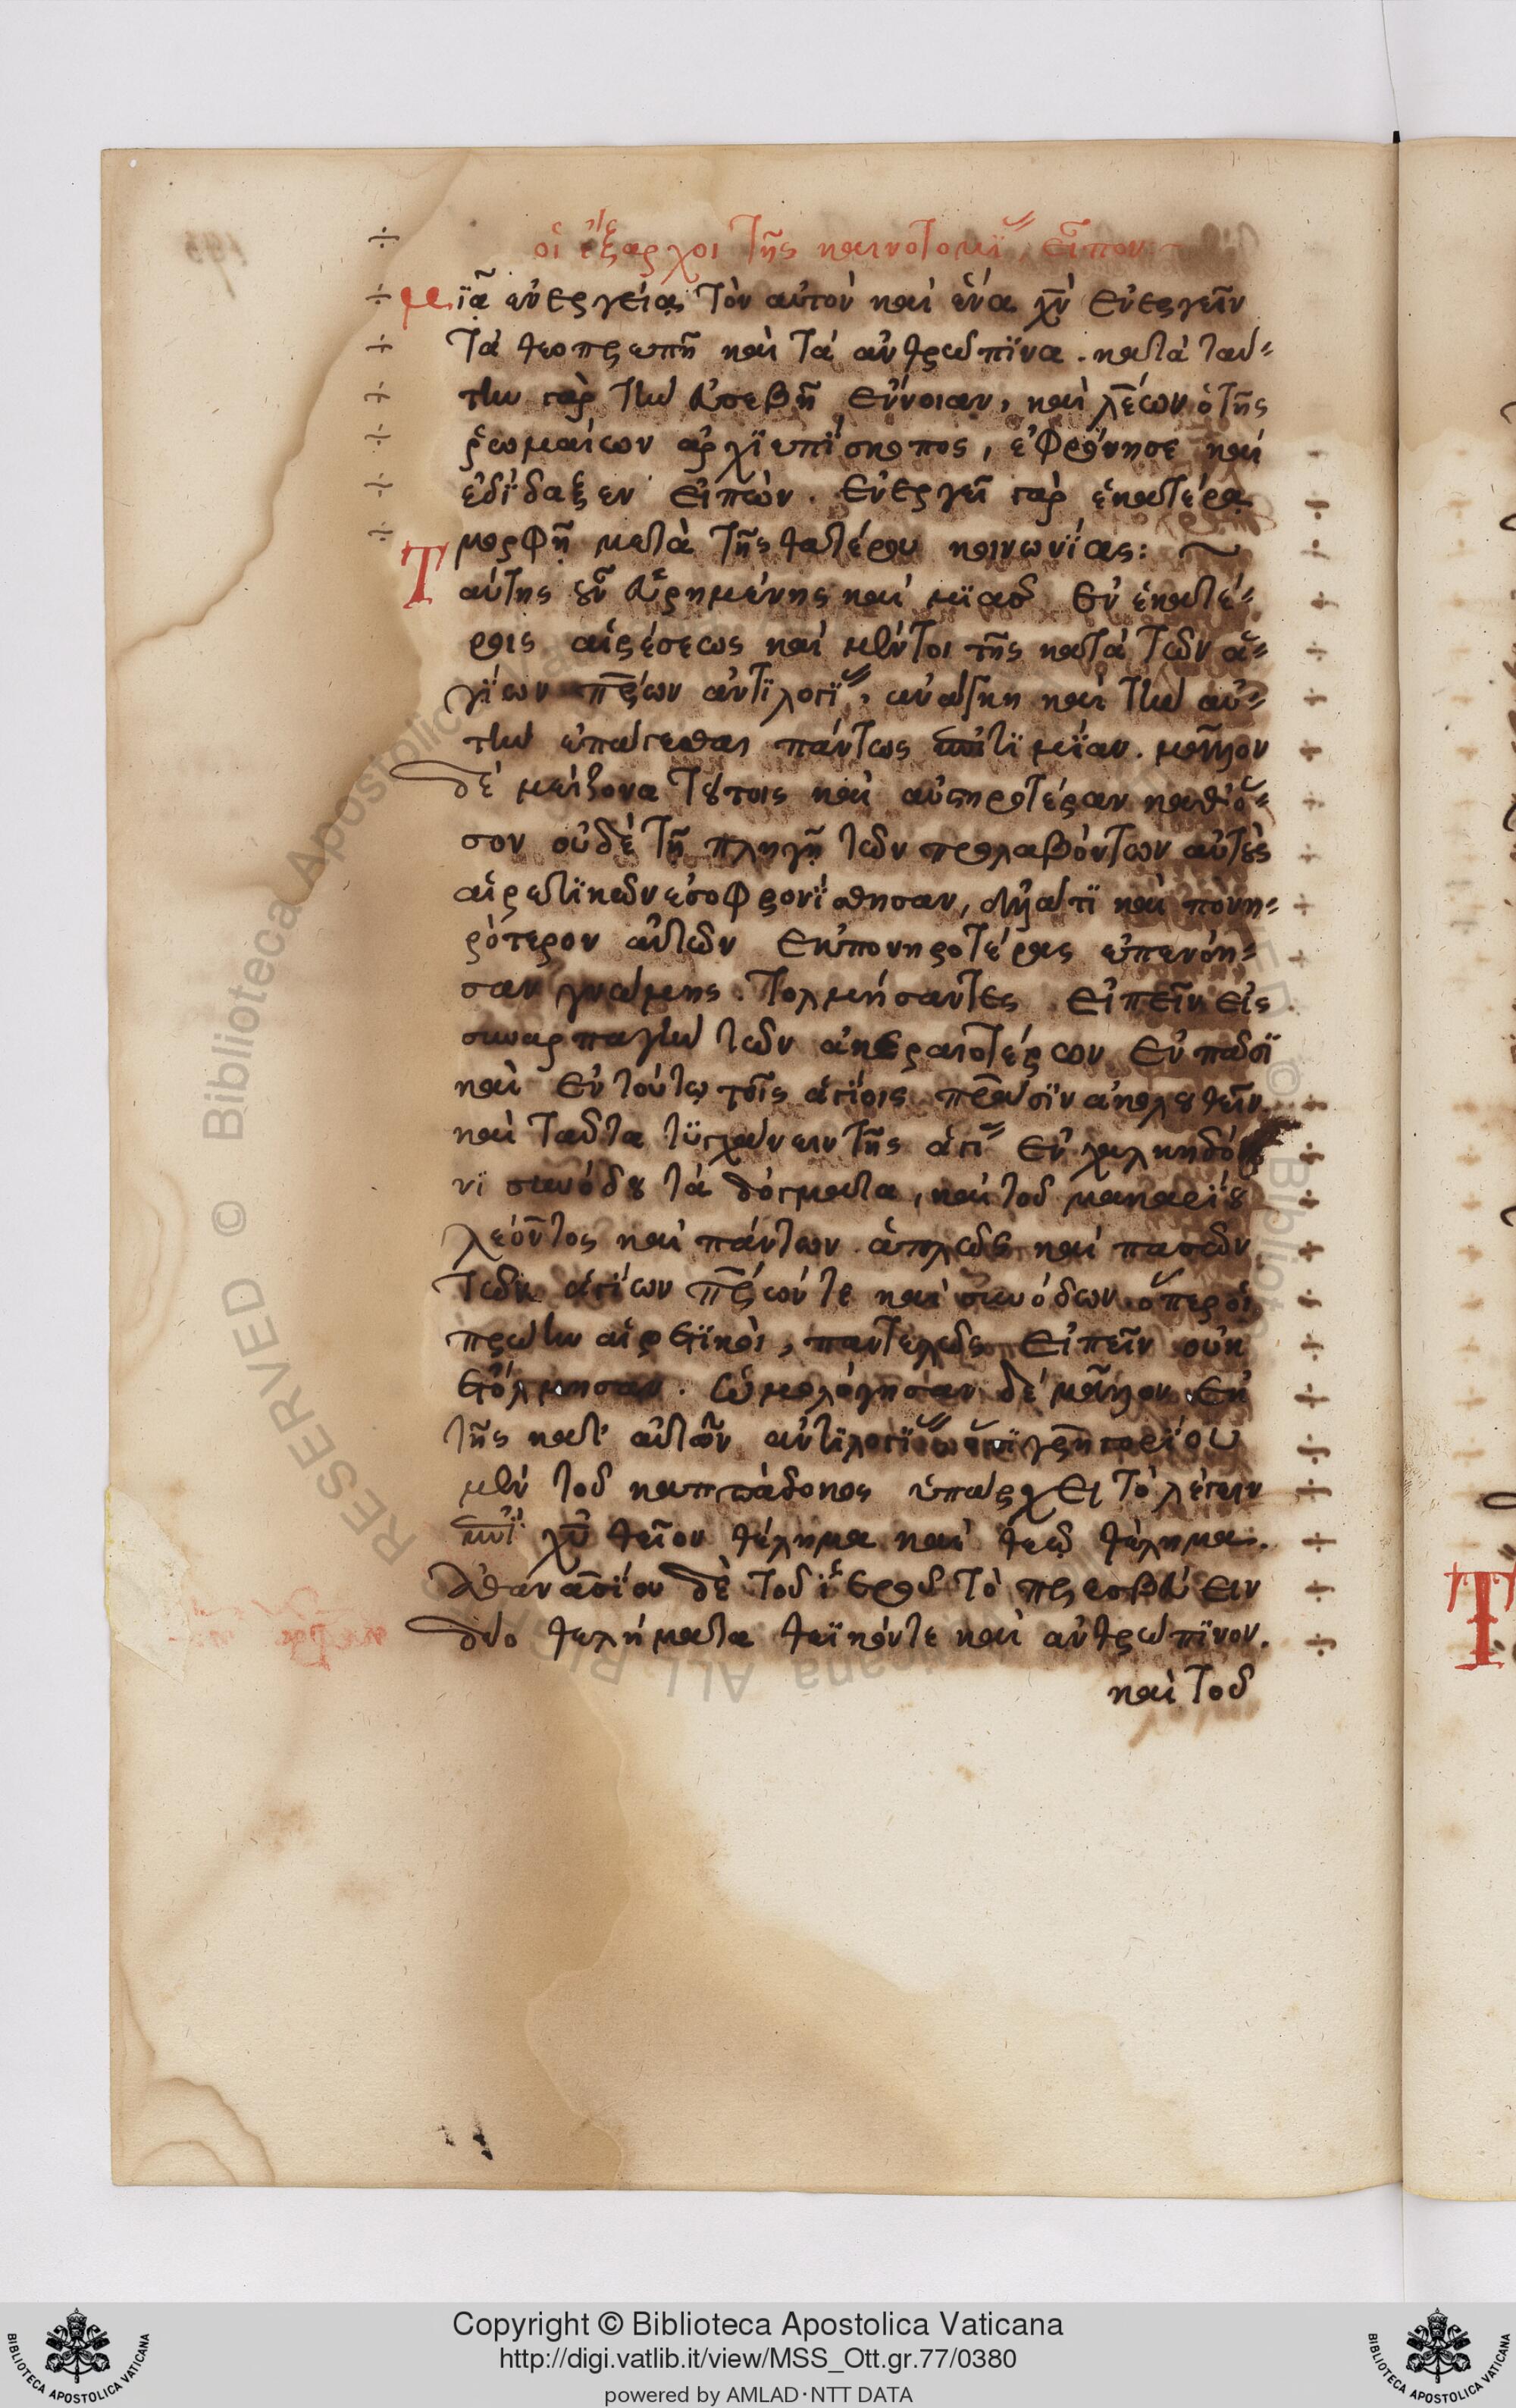 οἱ ἔξαρχοι τῆς καινοτομί, εἶπον
μϊᾷ ἐνεργείᾳ τὸν αὐτὸν καὶ ἕνα χν̅ ἐνεργεῖν
τὰ θεοπρεπῆ καὶ τὰ ἀνθρώπϊνα. κατὰ ταύ-
την γὰρ τὴν εὐσεβῆ ἔννοιαν, καὶ λέων ὁ τῆς
ῥωμαίων ἀρχϊεπΐσκοπος, ἐφρόνησε καὶ
ἐδΐδαξεν εἰπών. ἐνεργεῖ γὰρ ἑκατέρα
μορφῇ μετὰ τῆς θατέρου κοινωνΐας:
Ταύτης οὖν εὑρημένης καὶ μϊᾶς ἐν ἑκατέ-
ροις αἱρέσεως καὶ μέντοι τῆς κατὰ τῶν ἁ-
γΐων πρ̅ων ἀντϊλογϊ, ἀνάγκη καὶ τὴν αὐ-
τὴν ἐπάγεσθαι πάντως ἐπϊτϊμΐαν. μᾶλλον
δὲ μείζονα τούτοις καὶ αὐστηροτέραν καθ' ὅ-
σον οὐδὲ τῇ πληγῇ τῶν προλαβόντων αὐτοὺς
αἱρετϊκῶν ἐσοφρονΐσθησαν, ἀλλά τϊ καὶ πονη-
ρότερον αὐτῶν ἐκ πονηροτέρας ἐπενόη-
σαν γνώμης. τολμήσαντες εἰπεῖν εἰς
συναρπαγὴν τῶν ἀκεραιοτέρων ἐν πᾶσϊ
καὶ ἐν τούτῳ τοῖς ἁγΐοις πρ̅άσϊν ἀκολουθεῖν.
καὶ ταῦτα τϋγχάνειν τῆς ἁγϊ ἐν χαλκηδό
νϊ συνόδου τὰ δόγματα, καὶ τοῦ μακαρΐου
λέοντος καὶ πάντων ἁπλῶς καὶ πασῶν
τῶν ἁγΐων πρ̅ων τε καὶ συνόδων. ὅπερ οἱ
πρώην αἱρετϊκοὶ, παντελῶς εἰπεῖν οὐκ
ἐτόλμησαν. ὡμολόγησαν δὲ μᾶλλον ἐκ
τῆς κατ' αὐτῶν ἀντϊλογϊ γρηγορΐου
μὲν τοῦ καππάδοκος ὑπάρχει τὸ λέγειν
ἐπὶ χυ̅ θεῖον θέλημα καὶ θεῷ θέλημα.
Ἀθανασΐου δὲ τοῦ ϊεροῦ τὸ πρεσβεύειν
δύο θελήματα θεϊκόν τε καὶ ἀνθρώπϊνον.
καὶ τοῦ
Copyright © Biblioteca Apostolica Vaticana
http://digi.vatlib.it/view/MSS_Ott.gr.77/0380
powered by AMLAD·NTT DATA